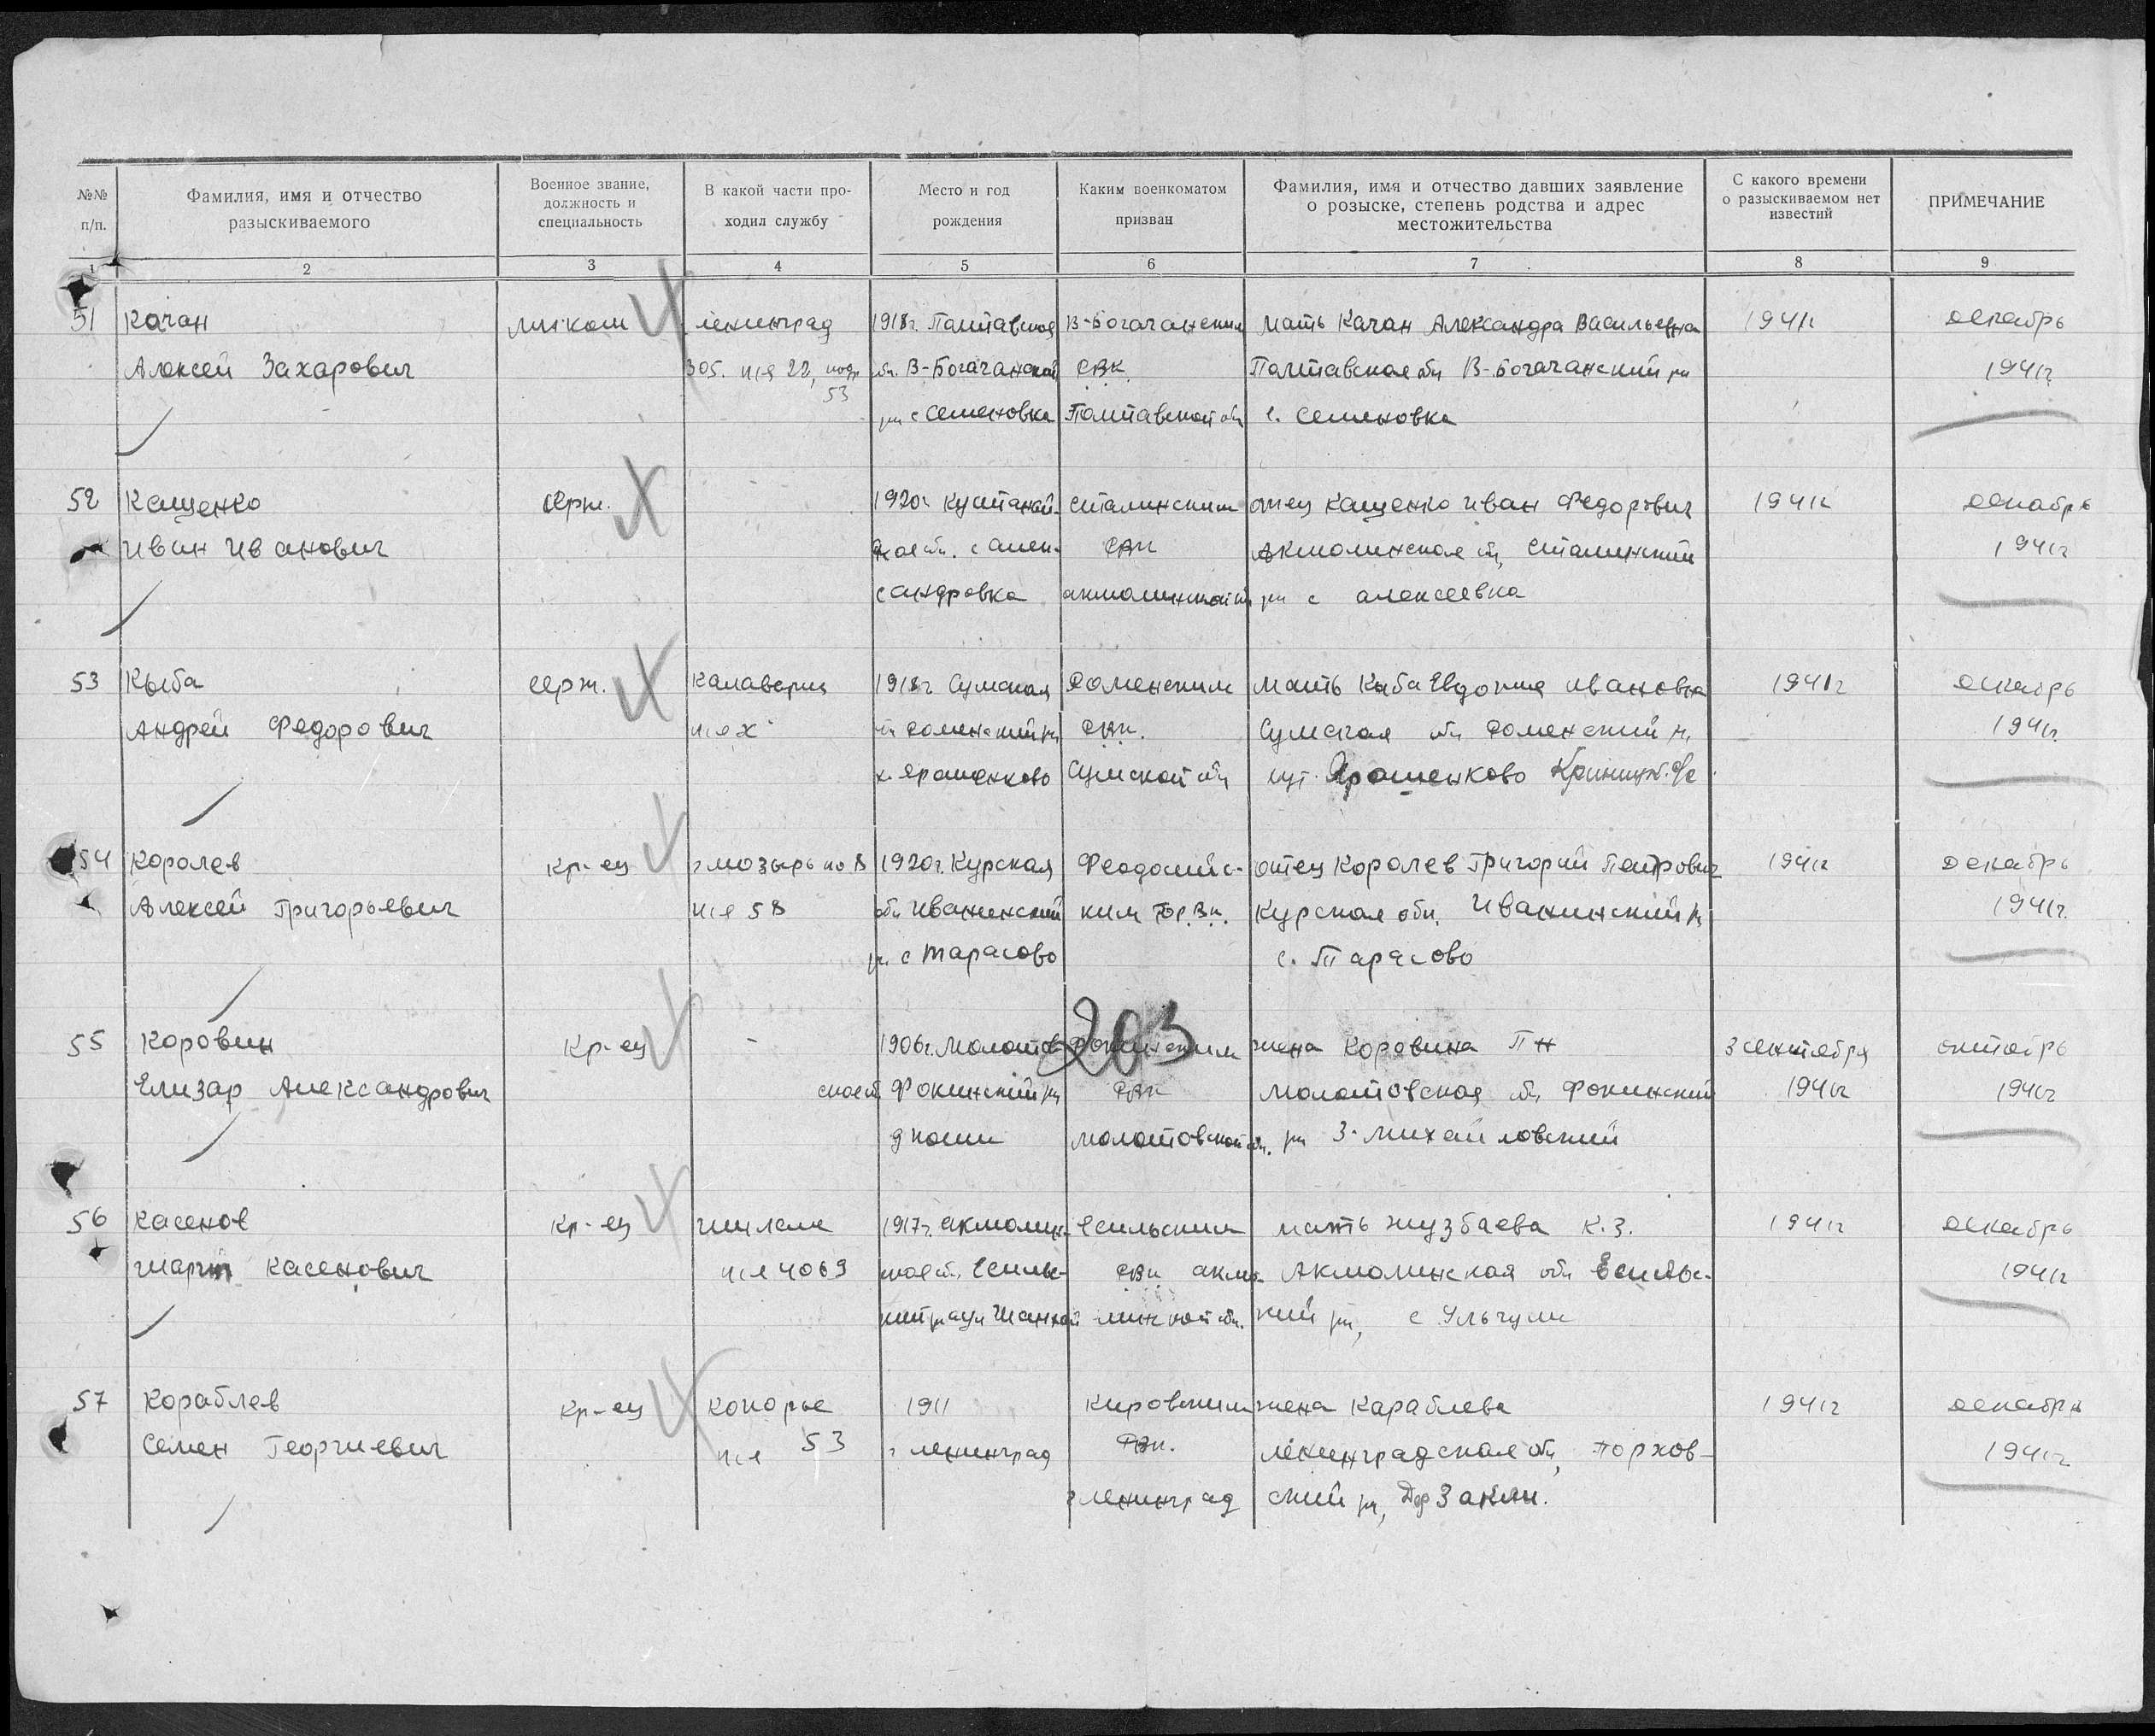 №№ п/п.
Фамилия, имя и отчество разыскиваемого
Военное звание, должность и специальность
В какой части проходил службу
Место и год рождения
Каким военкоматом призван
Фамилия, имя и отчество давших заявление о розыске, степень родства и адрес местожительства
С какого времени о разыскиваемом нет известий
ПРИМЕЧАНИЕ
1 2 3 4 5 6 7 8 9
51 Качан Ленинград 1918г. Полтавская В-Богачанским мать Качан Александра Васильевна 1941г декабрь
Алексей Захарович п/я 22, обл. В-Богачанский РВК Полтавская обл В-Богачанский рн 1941г
53
рн с Семеновка Полтавской обл с. Семеновка
52 Кащенко серж. 1920г Кустанай- Сталинским отец Кащенко Иван Федорович 1941г декабрь
Иван Иванович обл. с Алек- РВК Акмолинская обл, Сталинский 1941г
сандровка Акмолинской рн с Алексеевка
53 Кыба серж. 1918г Сумская Роменским мать Кыба Евдокия Ивановна 1941г декабрь
Андрей Федорович п/я Роменский рн РВК. Сумская обл Роменский рн 1941г.
х. Ярошенково Сумской обл хут. Ярошенково
54 Королев кр-ец г Мозырь 1920г. Курская Феодосийс- отец Королев Григорий Петрович 1941г декабрь
Алексей Григорьевич п/я 58 обл Иванинский ким Гор.Вк. Курская обл. Иванинский рн 1941г.
рн. с Тарасово с. Тарасово
203
55 Коровин кр-ец - 1906г. Молотов- Фокинским жена Коровина П Н 3 сентября октябрь
Елизар Александрович ской Фокинский рн РВК Молотовская обл, Фокинский 1941г 1941г
д Молотовской обл. рн З-Михайловский
56 Касенов кр-ец 1917г. Акмолин- Есильским мать Жузбаева К.З. 1941г декабрь
Касенович п/я 4069 Есиль- РВК Акмо- Акмолинская обл Есиль- 1941г
ский р аул линской обл. ский рн, с
57 Кораблев кр-ец Копорье 1911 Кировским жена Караблева 1941г декабрь
Семен Георгиевич п/я 53 г Ленинград РВК. Ленинградская обл, Порхов- 1941г
г Ленинград ский рн, Дер